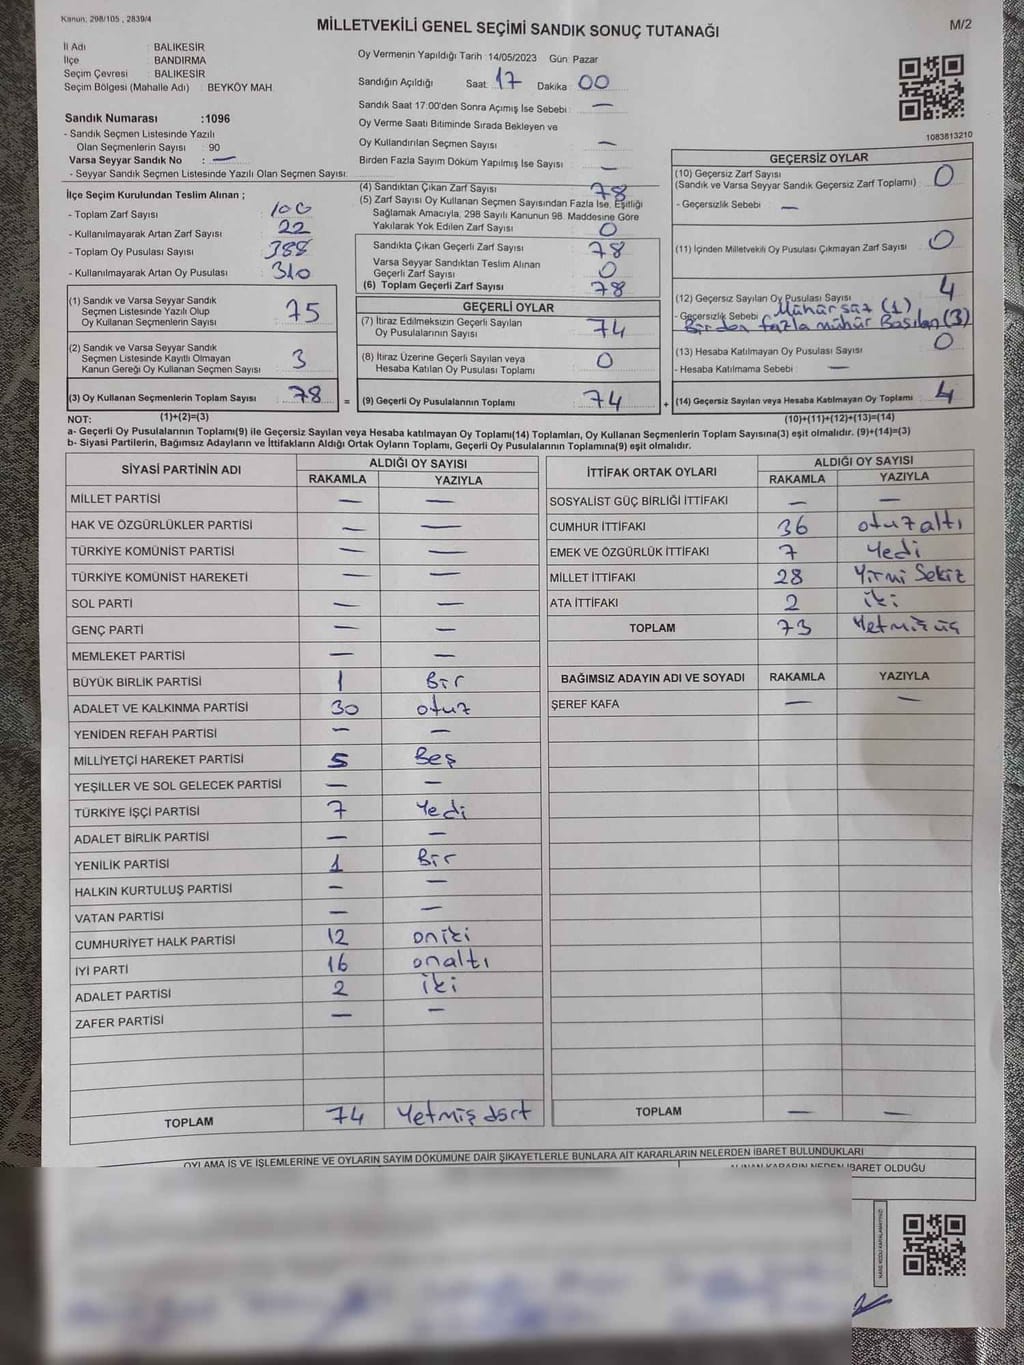 Kanun: 298/105 , 2839/4
MİLLETVEKİLİ GENEL SEÇİMİ SANDIK SONUÇ TUTANAĞI
M/2
İl Adı : BALIKESİR
İlçe : BANDIRMA
Seçim Çevresi : BALIKESİR
Seçim Bölgesi (Mahalle Adı) : BEYKÖY MAH.
Sandık Numarası :1096
- Sandık Seçmen Listesinde Yazılı
Olan Seçmenlerin Sayısı : 90
Varsa Seyyar Sandık No : —
- Seyyar Sandık Seçmen Listesinde Yazılı Olan Seçmen Sayısı:
Oy Vermenin Yapıldığı Tarih :14/05/2023 Gün: Pazar
Sandığın Açıldığı Saat: 17 Dakika: 00
Sandık Saat 17:00'den Sonra Açımış İse Sebebi : —
Oy Verme Saati Bitiminde Sırada Bekleyen ve
Oy Kullandırılan Seçmen Sayısı : —
Birden Fazla Sayım Döküm Yapılmış İse Sayısı : —
1083813210
İlçe Seçim Kurulundan Teslim Alınan ;
- Toplam Zarf Sayısı : 100
- Kullanılmayarak Artan Zarf Sayısı : 22
- Toplam Oy Pusulası Sayısı : 388
- Kullanılmayarak Artan Oy Pusulası : 310
(1) Sandık ve Varsa Seyyar Sandık
Seçmen Listesinde Yazılı Olup
Oy Kullanan Seçmenlerin Sayısı : 75
(2) Sandık ve Varsa Seyyar Sandık
Seçmen Listesinde Kayıtlı Olmayan
Kanun Gereği Oy Kullanan Seçmen Sayısı : 3
(3) Oy Kullanan Seçmenlerin Toplam Sayısı : 78 =
(4) Sandıktan Çıkan Zarf Sayısı : 78
(5) Zarf Sayısı Oy Kullanan Seçmen Sayısından Fazla İse, Eşitliği
Sağlamak Amacıyla, 298 Sayılı Kanunun 98. Maddesine Göre
Yakılarak Yok Edilen Zarf Sayısı : 0
Sandıkta Çıkan Geçerli Zarf Sayısı : 78
Varsa Seyyar Sandıktan Teslim Alınan
Geçerli Zarf Sayısı : 0
(6) Toplam Geçerli Zarf Sayısı : 78
GEÇERLİ OYLAR
(7) İtiraz Edilmeksizin Geçerli Sayılan
Oy Pusulalarının Sayısı : 74
(8) İtiraz Üzerine Geçerli Sayılan veya
Hesaba Katılan Oy Pusulası Toplamı : 0
(9) Geçerli Oy Pusulalarının Toplamı : 74 +
GEÇERSİZ OYLAR
(10) Geçersiz Zarf Sayısı
(Sandık ve Varsa Seyyar Sandık Geçersiz Zarf Toplamı) : 0
- Geçersizlik Sebebi : —
(11) İçinden Milletvekili Oy Pusulası Çıkmayan Zarf Sayısı : 0
(12) Geçersiz Sayılan Oy Pusulası Sayısı : 4
- Geçersizlik Sebebi : Mühürsüz (1)
Birden fazla mühür Basılan (3)
(13) Hesaba Katılmayan Oy Pusulası Sayısı : 0
- Hesaba Katılmama Sebebi : —
(14) Geçersiz Sayılan veya Hesaba Katılmayan Oy Toplamı : 4
NOT: (1)+(2)=(3) (10)+(11)+(12)+(13)=(14)
a- Geçerli Oy Pusulalarının Toplamı(9) ile Geçersiz Sayılan veya Hesaba katılmayan Oy Toplamı(14) Toplamları, Oy Kullanan Seçmenlerin Toplam Sayısına(3) eşit olmalıdır. (9)+(14)=(3)
b- Siyasi Partilerin, Bağımsız Adayların ve İttifakların Aldığı Ortak Oyların Toplamı, Geçerli Oy Pusulalarının Toplamına(9) eşit olmalıdır.
SİYASİ PARTİNİN ADI ALDIĞI OY SAYISI
RAKAMLA YAZIYLA
MİLLET PARTİSİ — —
HAK VE ÖZGÜRLÜKLER PARTİSİ — —
TÜRKİYE KOMÜNİST PARTİSİ — —
TÜRKİYE KOMÜNİST HAREKETİ — —
SOL PARTİ — —
GENÇ PARTİ — —
MEMLEKET PARTİSİ — —
BÜYÜK BİRLİK PARTİSİ 1 Bir
ADALET VE KALKINMA PARTİSİ 30 otuz
YENİDEN REFAH PARTİSİ — —
MİLLİYETÇİ HAREKET PARTİSİ 5 Beş
YEŞİLLER VE SOL GELECEK PARTİSİ — —
TÜRKİYE İŞÇİ PARTİSİ 7 Yedi
ADALET BİRLİK PARTİSİ — —
YENİLİK PARTİSİ 1 Bir
HALKIN KURTULUŞ PARTİSİ — —
VATAN PARTİSİ — —
CUMHURİYET HALK PARTİSİ 12 oniki
İYİ PARTİ 16 onaltı
ADALET PARTİSİ 2 iki
ZAFER PARTİSİ — —
TOPLAM 74 Yetmiş dört
İTTİFAK ORTAK OYLARI ALDIĞI OY SAYISI
RAKAMLA YAZIYLA
SOSYALİST GÜÇ BİRLİĞİ İTTİFAKI — —
CUMHUR İTTİFAKI 36 otuz altı
EMEK VE ÖZGÜRLÜK İTTİFAKI 7 Yedi
MİLLET İTTİFAKI 28 Yirmi Sekiz
ATA İTTİFAKI 2 iki
TOPLAM 73 Yetmiş üç
BAĞIMSIZ ADAYIN ADI VE SOYADI RAKAMLA YAZIYLA
ŞEREF KAFA — —
TOPLAM — —
OYLAMA İŞ VE İŞLEMLERİNE VE OYLARIN SAYIM DÖKÜMÜNE DAİR ŞİKAYETLERLE BUNLARA AİT KARARLARIN NELERDEN İBARET BULUNDUKLARI
ALINAN KARARIN NEDEN İBARET OLDUĞU